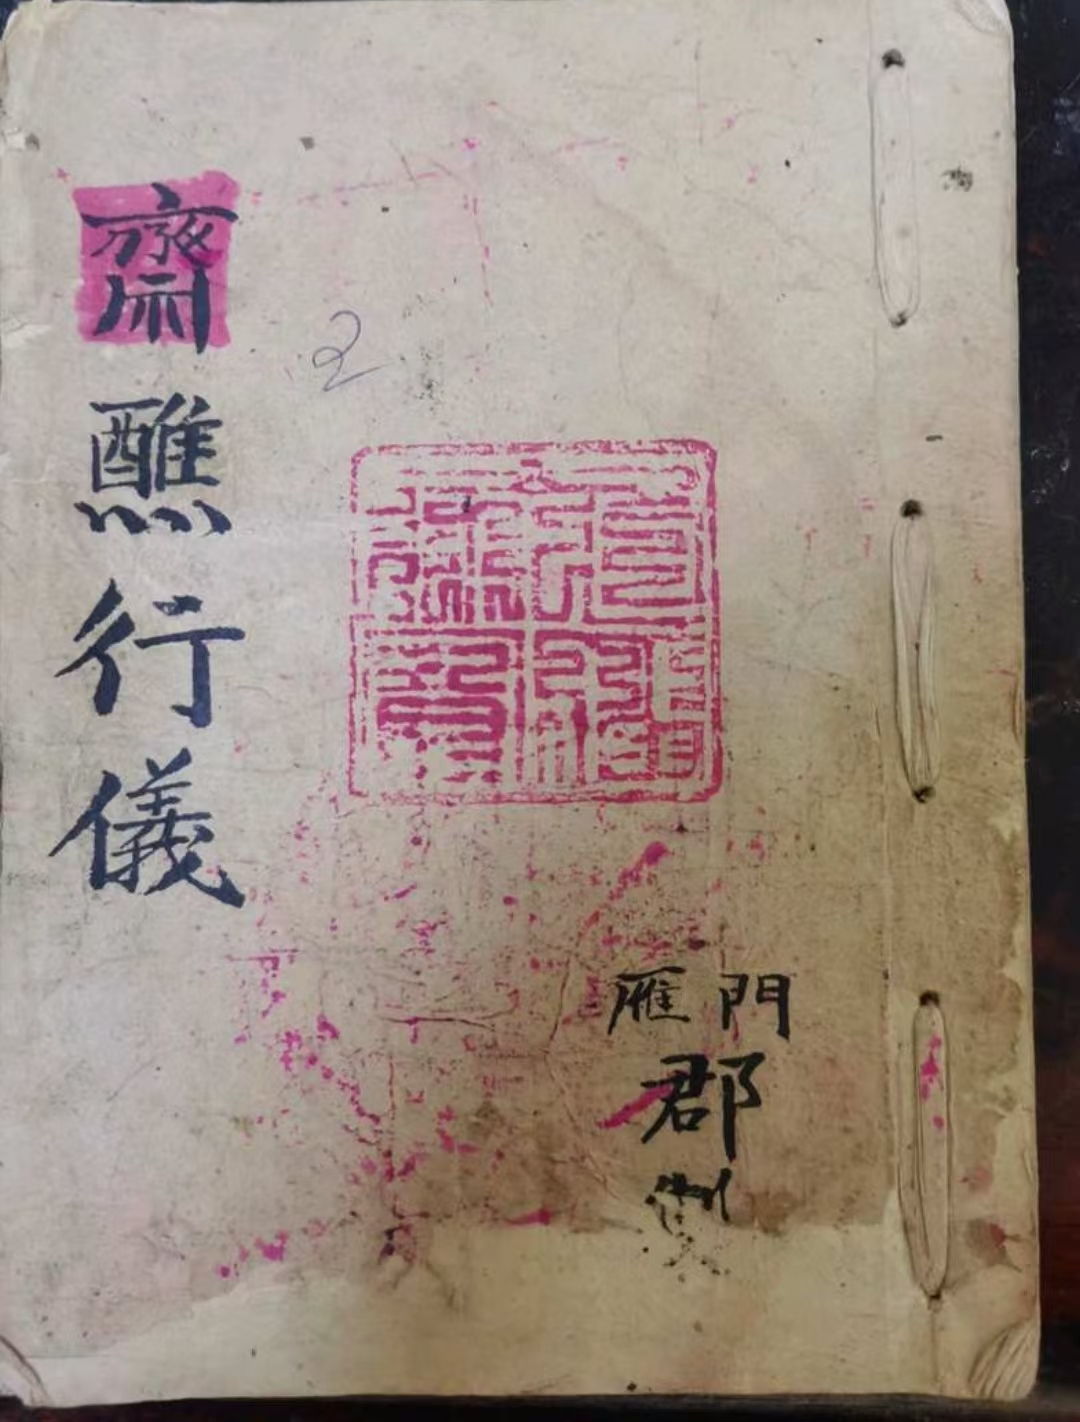 齋醮行儀
2
門雁
郡製